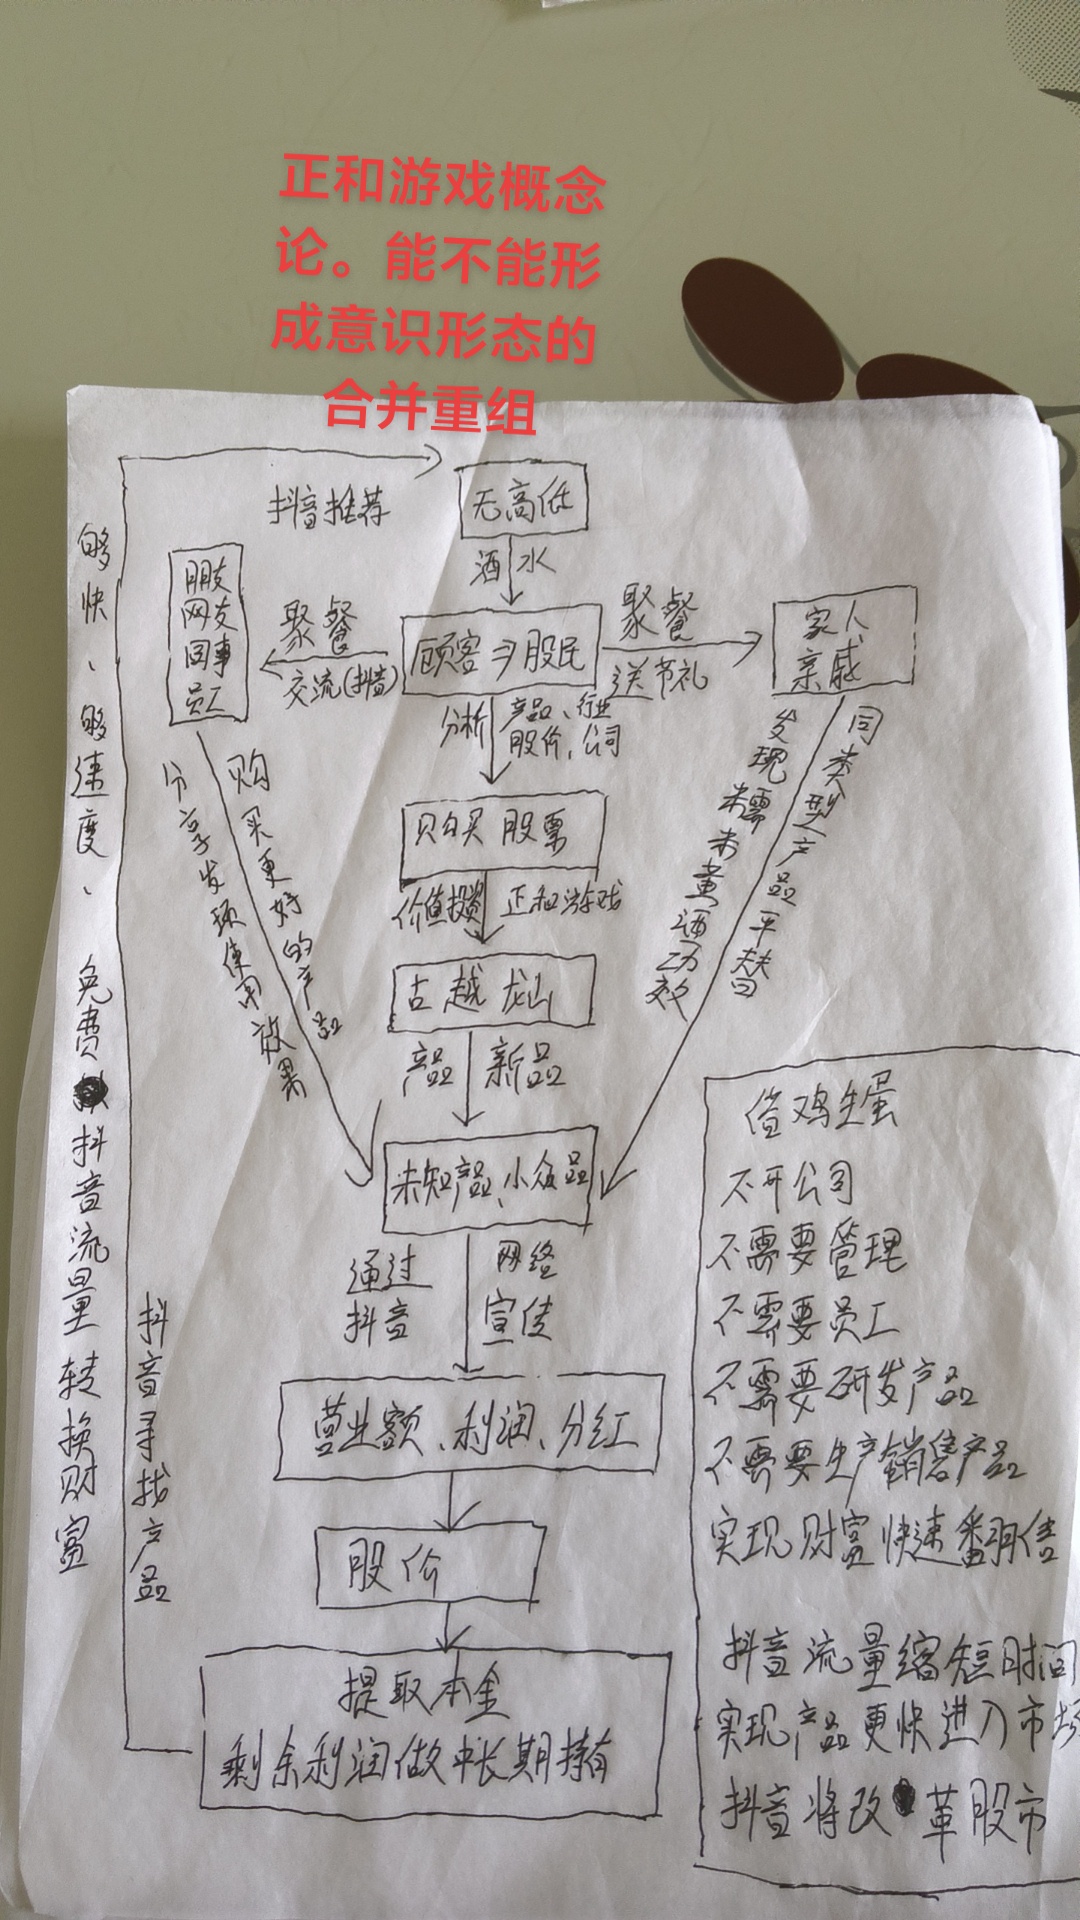 正和游戏概念
论。能不能形
成意识形态的
合并重组
抖音推荐
无高低
酒水
朋友
网友
同事
员工
聚餐
交流(抖音)
顾客⇒股民
聚餐
送节礼
家人
亲戚
分析
产品、行业
股价、公司
购买股票
价值投资
正和游戏
古越龙山
产品
新品
未知产品、小众品
通过
抖音
网络
宣传
营业额、利润、分红
股价
提取本金
剩余利润做中长期持有
购买更好的产品
分享发现使用效果
同类型产品平替
发现糯米黄酒功效
够快、够速度、免费抖音流量转换财富
抖音寻找产品
借鸡生蛋
不开公司
不需要管理
不需要员工
不需要研发产品
不需要生产销售产品
实现财富快速翻倍
抖音流量缩短时间
实现产品更快进入市场
抖音将改革股市